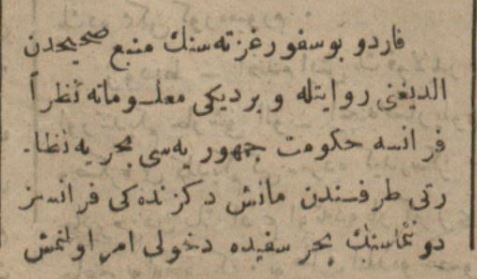 فاردو بوسفور غزته‌سنك منبع صحيحدن
الديغى روايتله ويرديكى معلوماته نظراً
فرانسه حكومت جمهوريه‌سى بحريه نظا-
رتى طرفندن مانش دكزنده‌كى فرانسز
دوننماسنك بحر سفيده دخولى امر اولنمش